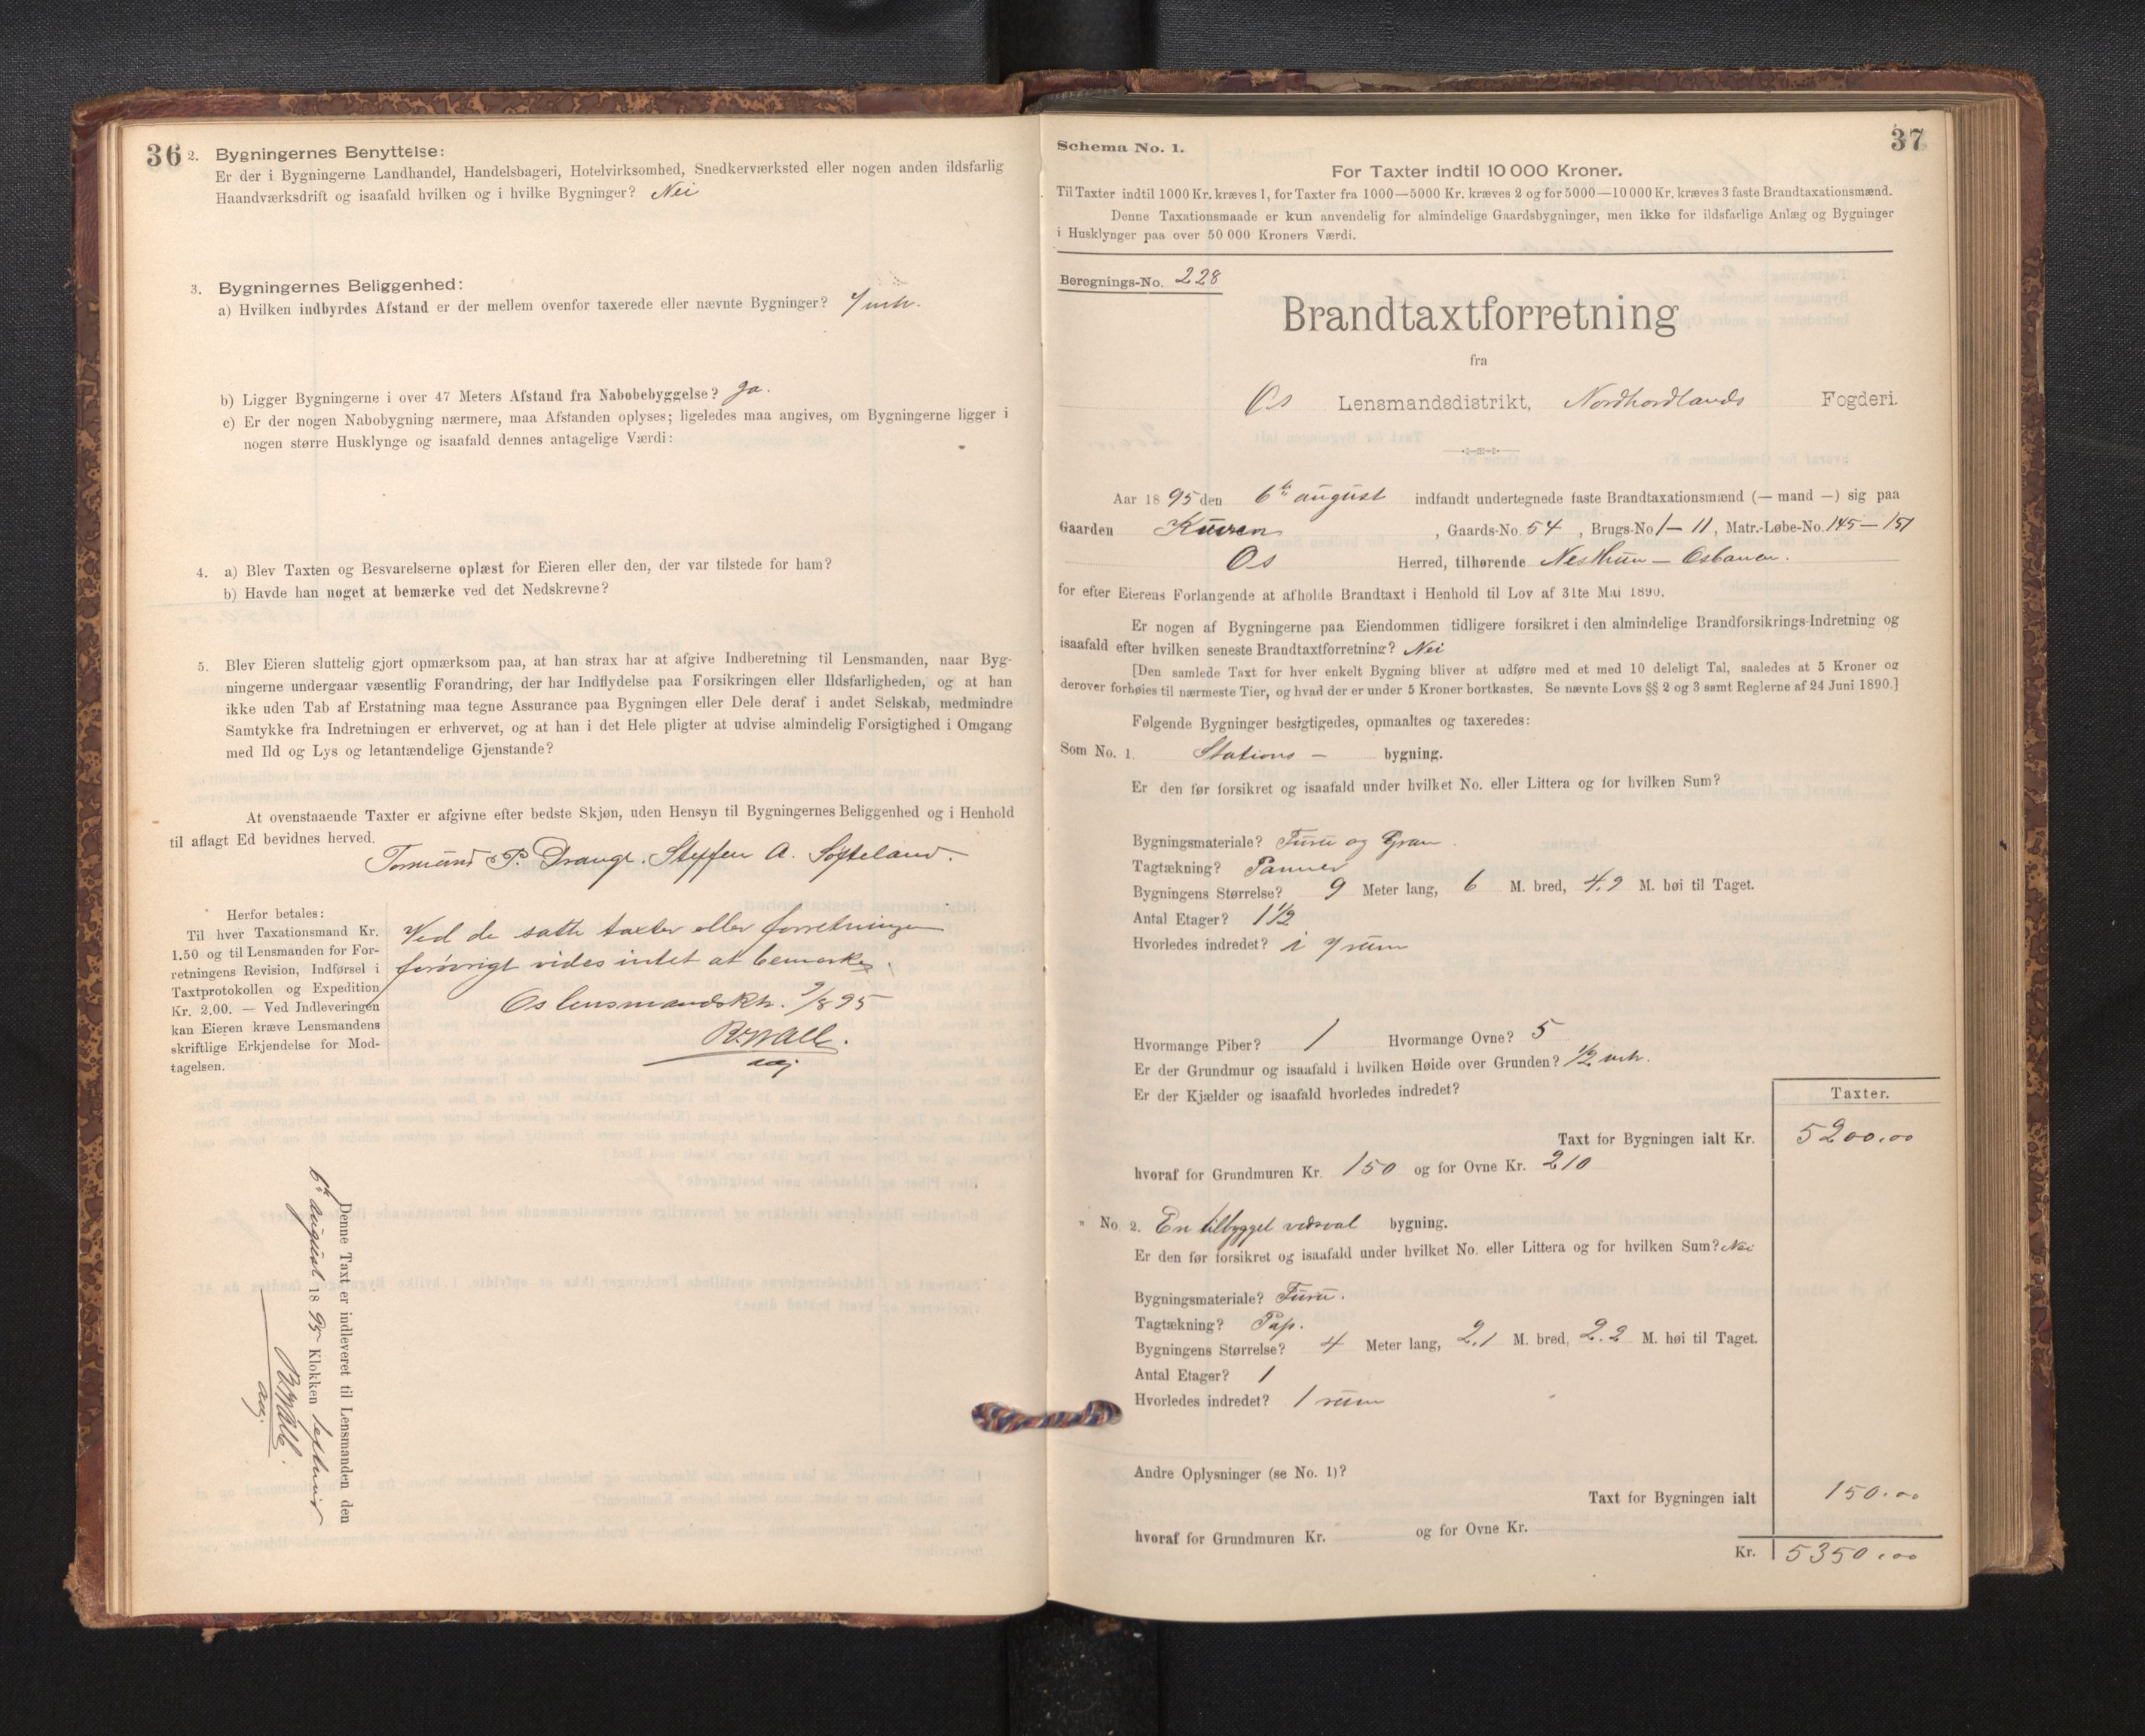 36
2. Bygningernes Benyttelse:
Er der i Bygningerne Landhandel, Handelsbageri, Hotelvirksomhed, Snedkerværksted eller nogen anden ildsfarlig
Haandværksdrift og isaafald hvilken og i hvilke Bygninger? Nei
3. Bygningernes Beliggenhed:
a) Hvilken indbyrdes Afstand er der mellem ovenfor taxerede eller nævnte Bygninger?
b) Ligger Bygningerne i over 47 Meters Afstand fra Nabobebyggelse? Ja.
c) Er der nogen Nabobygning nærmere, maa Afstanden oplyses; ligeledes maa angives, om Bygningerne ligger i
nogen større Husklynge og isaafald dennes antagelige Værdi:
4. a) Blev Taxten og Besvarelserne oplæst for Eieren eller den, der var tilstede for ham?
b) Havde han noget at bemærke ved det Nedskrevne?
5. Blev Eieren sluttelig gjort opmærksom paa, at han strax har at afgive Indberetning til Lensmanden, naar Byg-
ningerne undergaar væsentlig Forandring, der har Indflydelse paa Forsikringen eller Ildsfarligheden, og at han
ikke uden Tab af Erstatning maa tegne Assurance paa Bygningen eller Dele deraf i andet Selskab, medmindre
Samtykke fra Indretningen er erhvervet, og at han i det Hele pligter at udvise almindelig Forsigtighed i Omgang
med Ild og Lys og letantændelige Gjenstande?
At ovenstaaende Taxter er afgivne efter bedste Skjøn, uden Hensyn til Bygningernes Beliggenhed og i Henhold
til aflagt Ed bevidnes herved.
Tormund P. Drange. Steffen A. Søfteland.
Herfor betales:
Til hver Taxationsmand Kr.
1.50 og til Lensmanden for For-
retningens Revision, Indførsel i
Taxtprotokollen og Expedition
Kr. 2.00. — Ved Indleveringen
kan Eieren kræve Lensmandens
skriftlige Erkjendelse for Mod-
tagelsen.
Ved de satte taxter eller forretningen
forøvrigt vides intet at bemærke.
Os lensmandsktr. 9/8 95
Denne Taxt er indleveret til Lensmanden den
6te august 1895 Klokken
37
Schema No. 1.
For Taxter indtil 10 000 Kroner.
Til Taxter indtil 1000 Kr. kræves 1, for Taxter fra 1000—5000 Kr. kræves 2 og for 5000—10 000 Kr. kræves 3 faste Brandtaxationsmænd.
Denne Taxationsmaade er kun anvendelig for almindelige Gaardsbygninger, men ikke for ildsfarlige Anlæg og Bygninger
i Husklynger paa over 50 000 Kroners Værdi.
Beregnings-No. 228
Brandtaxtforretning
fra
Os Lensmandsdistrikt, Nordhordlands Fogderi.
Aar 1895 den 6te august indfandt undertegnede faste Brandtaxationsmænd (— mand —) sig paa
Gaarden Kuven, Gaards-No. 54, Brugs-No 1—11, Matr.-Løbe-No. 145—151
Os Herred, tilhørende Nesttun—Osbanen.
for efter Eierens Forlangende at afholde Brandtaxt i Henhold til Lov af 31te Mai 1890.
Er nogen af Bygningerne paa Eiendommen tidligere forsikret i den almindelige Brandforsikrings-Indretning og
isaafald efter hvilken seneste Brandtaxtforretning? Nei
[Den samlede Taxt for hver enkelt Bygning bliver at udføre med et med 10 deleligt Tal, saaledes at 5 Kroner og
derover forhøies til nærmeste Tier, og hvad der er under 5 Kroner bortkastes. Se nævnte Lovs §§ 2 og 3 samt Reglerne af 24 Juni 1890.]
Følgende Bygninger besigtigedes, opmaaltes og taxeredes:
Som No. 1. Stations— bygning.
Er den før forsikret og isaafald under hvilket No. eller Littera og for hvilken Sum?
Bygningsmateriale? Furu og Gran.
Tagtækning? Panner
Bygningens Størrelse? 9 Meter lang, 6 M. bred, 4.2 M. høi til Taget.
Antal Etager? 1 1/2
Hvorledes indredet? i 7 rum
Hvormange Piber? 1 Hvormange Ovne? 5
Er der Grundmur og isaafald i hvilken Høide over Grunden? 1/2 mtr.
Er der Kjælder og isaafald hvorledes indredet?
Taxter.
Taxt for Bygningen ialt Kr. 5200.00
hvoraf for Grundmuren Kr. 150 og for Ovne Kr. 210
" No. 2. En tilbygget vedsval bygning.
Er den før forsikret og isaafald under hvilket No. eller Littera og for hvilken Sum? Nei
Bygningsmateriale? Furu.
Tagtækning? Pap.
Bygningens Størrelse? 4 Meter lang, 2.1 M. bred, 2.2 M. høi til Taget.
Antal Etager? 1
Hvorledes indredet? 1 rum
Andre Oplysninger (se No. 1)?
Taxt for Bygningen ialt 150.00
hvoraf for Grundmuren Kr. og for Ovne Kr.
Kr. 5350.00